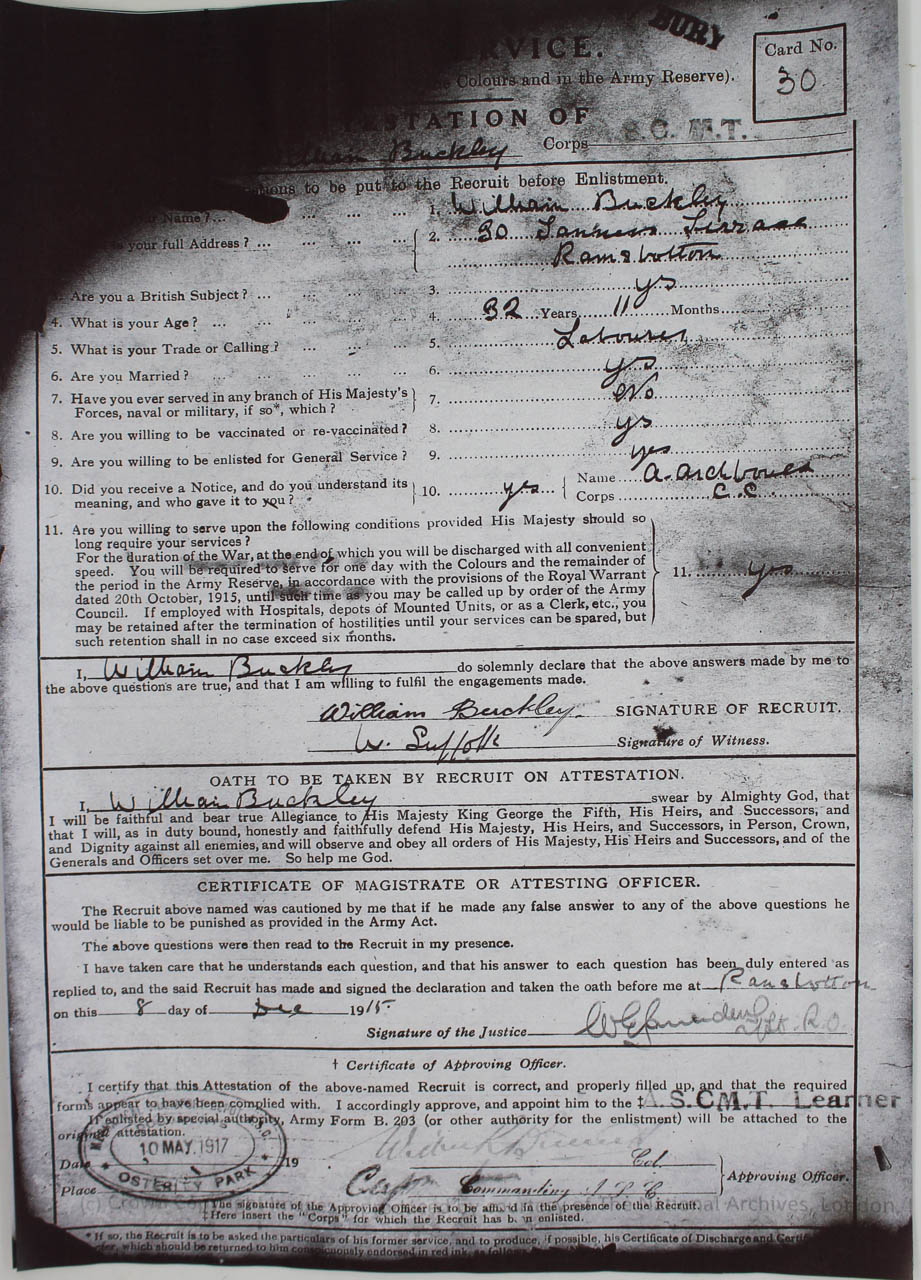 BURY
VICE.
Colours and in the Army Reserve).
Card No.
30
TESTATION OF
William Buckley Corps A.S.C. M.T.
tions to be put to the Recruit before Enlistment.
Name ? ... ... ... ... 1. William Buckley
your full Address ? ... ... ... ... 2. 30 Terrace
Ramsbottom
3. Are you a British Subject ? ... ... ... 3. yes
4. What is your Age ? ... ... ... 4. 32 Years 11 Months
5. What is your Trade or Calling ? ... ... 5. Labourer
6. Are you Married ? ... ... ... 6. yes
7. Have you ever served in any branch of His Majesty's
Forces, naval or military, if so*, which ? 7. No
8. Are you willing to be vaccinated or re-vaccinated ? 8. yes
9. Are you willing to be enlisted for General Service ? 9. yes
10. Did you receive a Notice, and do you understand its
meaning, and who gave it to you ? 10. yes Name A.
Corps
11. Are you willing to serve upon the following conditions provided His Majesty should so
long require your services ?
For the duration of the War, at the end of which you will be discharged with all convenient
speed. You will be required to serve for one day with the Colours and the remainder of
the period in the Army Reserve, in accordance with the provisions of the Royal Warrant
dated 20th October, 1915, until such time as you may be called up by order of the Army
Council. If employed with Hospitals, depots of Mounted Units, or as a Clerk, etc., you
may be retained after the termination of hostilities until your services can be spared, but
such retention shall in no case exceed six months.
11. yes
I, William Buckley do solemnly declare that the above answers made by me to
the above questions are true, and that I am willing to fulfil the engagements made.
William Buckley SIGNATURE OF RECRUIT.
W. Suffolk Signature of Witness.
OATH TO BE TAKEN BY RECRUIT ON ATTESTATION.
I, William Buckley swear by Almighty God, that
I will be faithful and bear true Allegiance to His Majesty King George the Fifth, His Heirs, and Successors, and
that I will, as in duty bound, honestly and faithfully defend His Majesty, His Heirs, and Successors, in Person, Crown,
and Dignity against all enemies, and will observe and obey all orders of His Majesty, His Heirs and Successors, and of the
Generals and Officers set over me. So help me God.
CERTIFICATE OF MAGISTRATE OR ATTESTING OFFICER.
The Recruit above named was cautioned by me that if he made any false answer to any of the above questions he
would be liable to be punished as provided in the Army Act.
The above questions were then read to the Recruit in my presence.
I have taken care that he understands each question, and that his answer to each question has been duly entered as
replied to, and the said Recruit has made and signed the declaration and taken the oath before me at Ramsbottom
on this 8 day of Dec 1915
Signature of the Justice R.O.
† Certificate of Approving Officer.
I certify that this Attestation of the above-named Recruit is correct, and properly filled up, and that the required
forms appear to have been complied with. I accordingly approve, and appoint him to the ‡ A.S.C M.T. Learner
If enlisted by special authority, Army Form B. 203 (or other authority for the enlistment) will be attached to the
original attestation.
10 MAY. 1917
OSTERLEY PARK
Date 19 Col.
Place Commanding Approving Officer.
(c) Crown The National Archives, London
† The signature of the Approving Officer is to be affixed in the presence of the Recruit.
‡ Here insert the "Corps" for which the Recruit has been enlisted.
* If so, the Recruit is to be asked the particulars of his former service, and to produce, if possible, his Certificate of Discharge and
which should be returned to him conspicuously endorsed in red ink, as follows